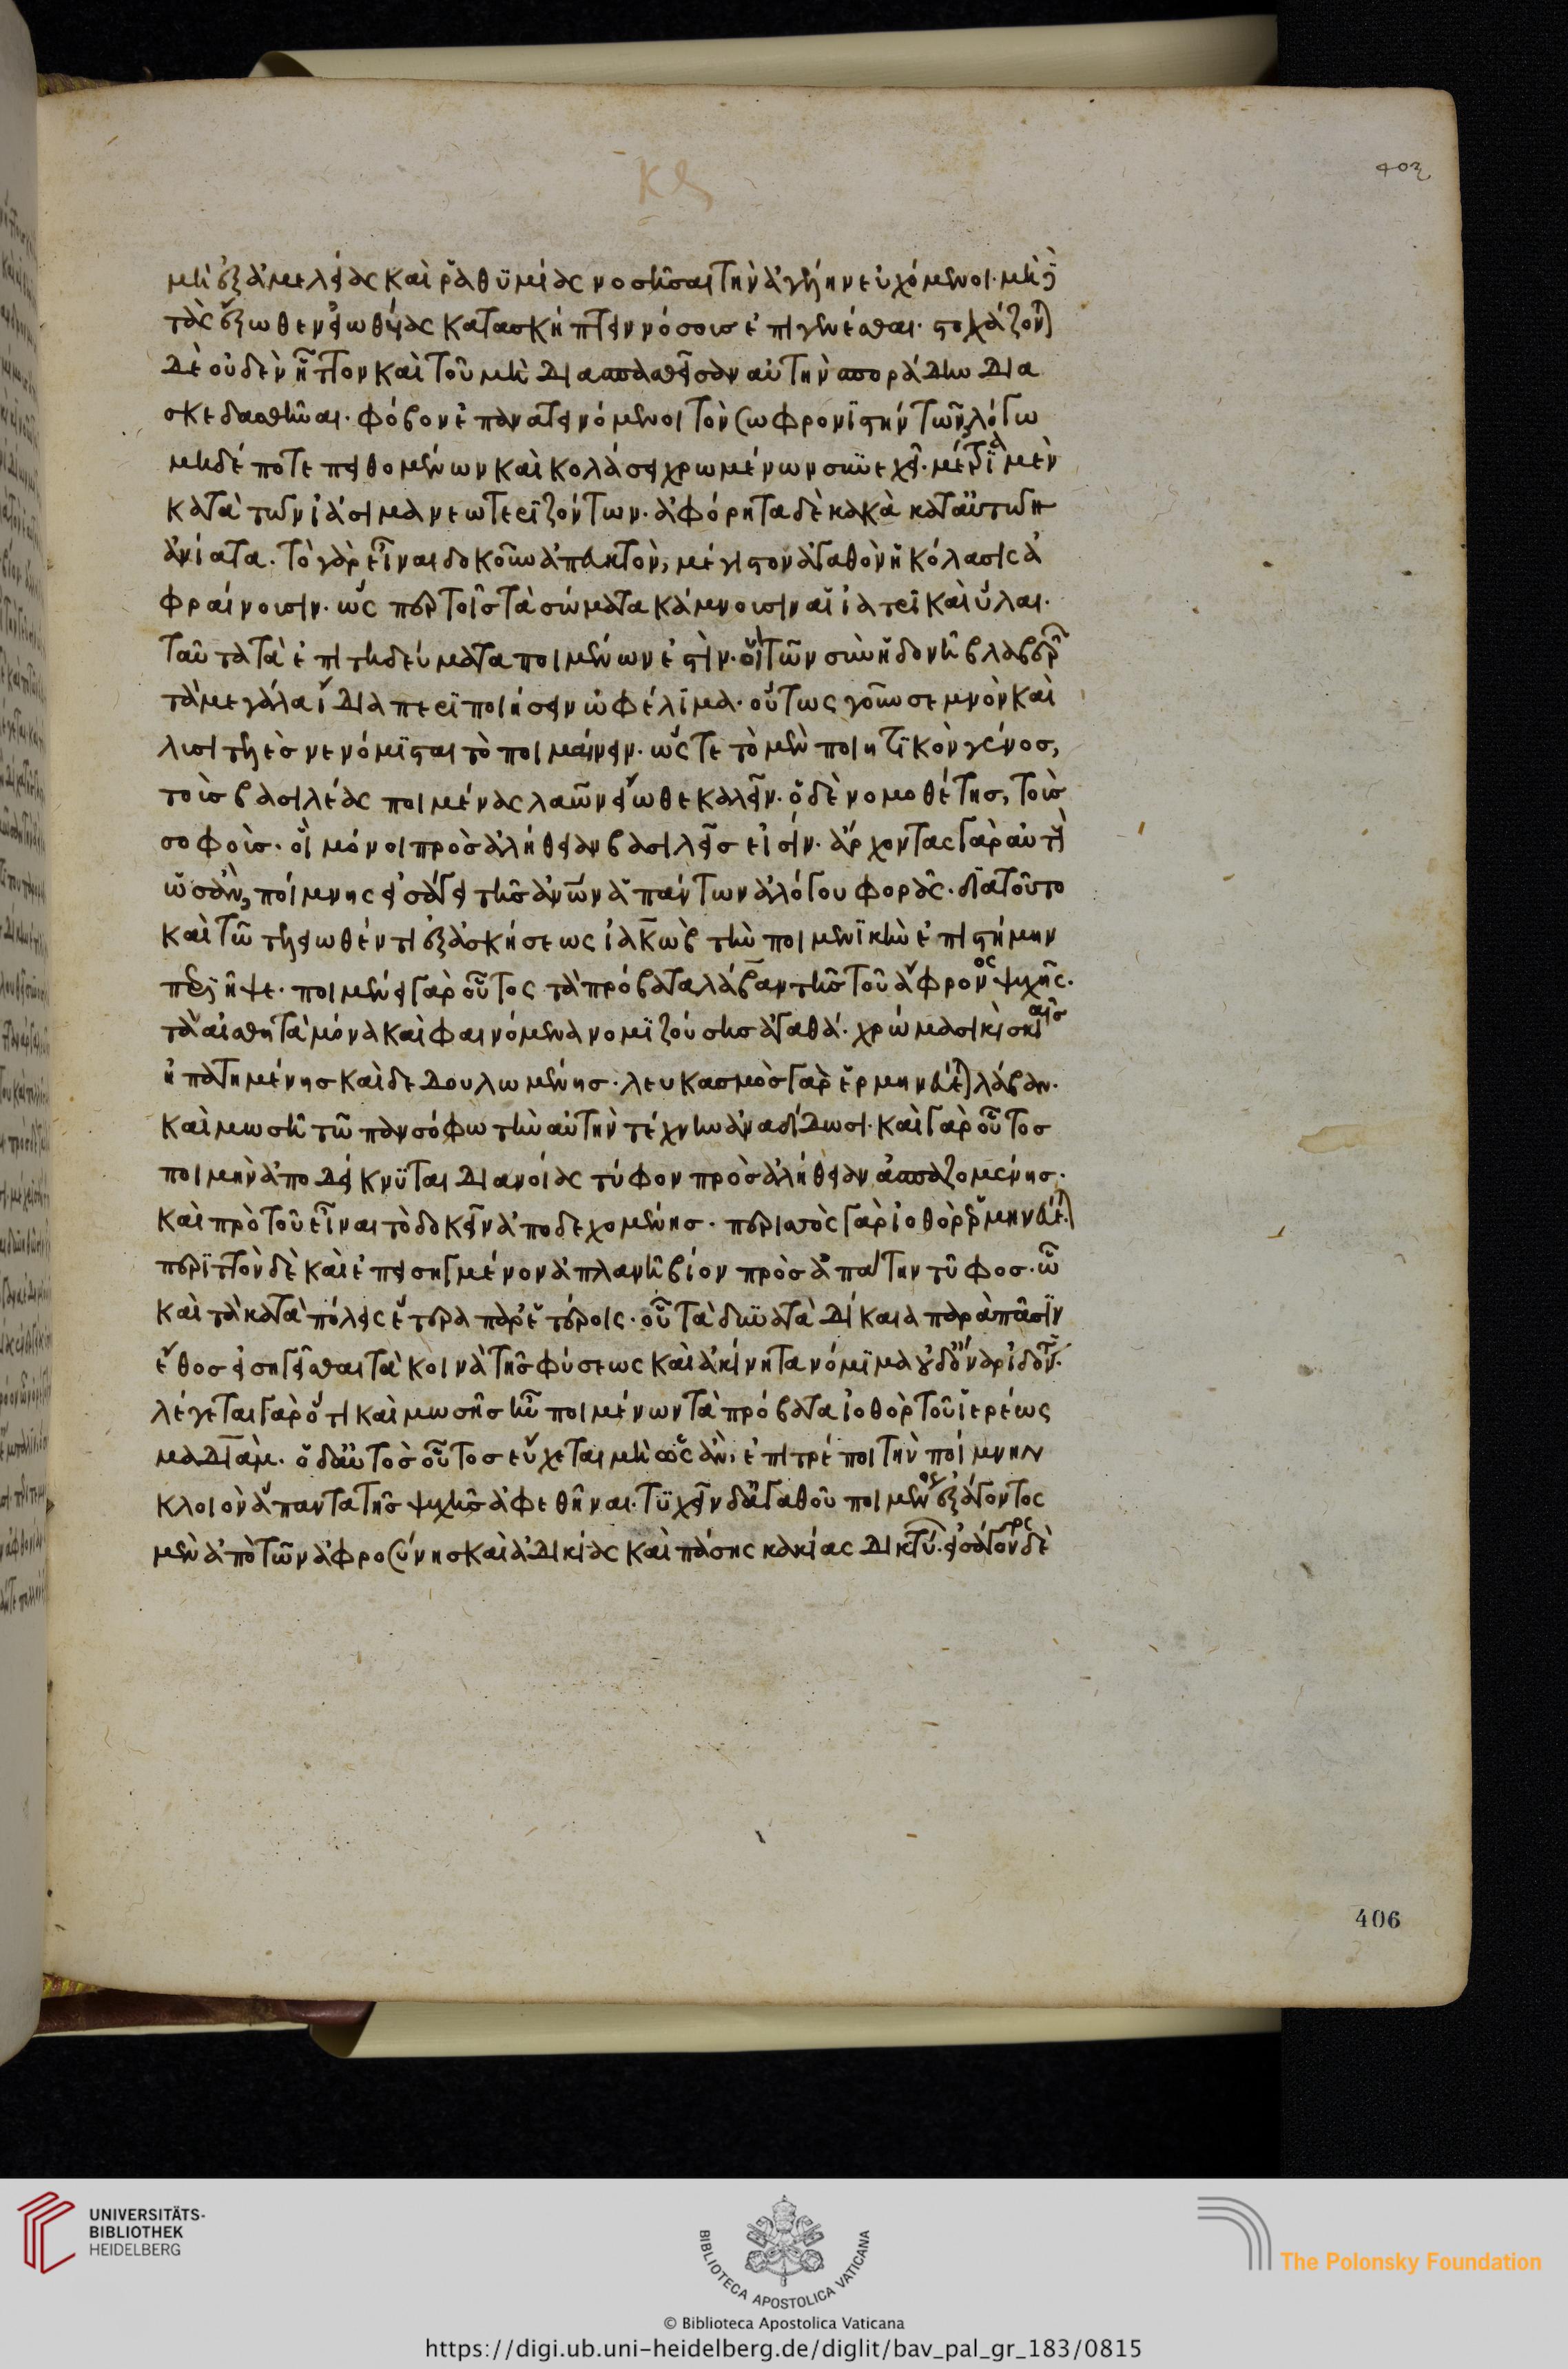 403
κς
μὴ ἐξ ἀμελείας καὶ ῥαθϋμίας νοσῆσαι τὴν ἀγέλην εὐχόμενοι· μὴ
τὰς ἔξωθεν εἰωθυίας κατασκήπτειν νόσοις ἐπιγενέσθαι· στοχάζοντ
δὲ οὐδὲν ἧττον καὶ τοῦ μὴ διασπασθεῖσαν αὐτὴν σποράδην δια
σκεδασθῆναι· φόβον ἐπανατεινόμενοι τὸν σωφρονϊστὴν τῶν λόγω
μηδέποτε πειθομένων καὶ κολάσει χρωμένων συνεχεῖ· μετρία μὲν
κατὰ τῶν ἰάσιμα νεωτερϊζόντων· ἀφόρητα δὲ κακὰ κατὰ τῶν
ἀνίατα· τὸ γὰρ εἶναι δοκοῦν ἀπευκτὸν, μέγιστον ἀγαθὸν ἡ κόλασις ἀ
φραίνουσιν· ὥσπερ τοῖς τὰ σώματα κάμνουσιν αἱ ἰατρϊκαὶ ὗλαι·
ταῦτα τὰ ἐπιτηδεύματα ποιμένων ἐστὶν· οἳ τῶν σὺν ἡδονῆ βλαβερ
τὰ μεγάλα ποιήσειν ὠφέλϊμα· οὕτως γοῦν σεμνὸν καὶ
λυσιτελὲς νενόμϊσται τὸ ποιμαίνειν· ὥστε τὸ μὲν ποιητϊκὸν γένος,
τοὺς βασιλέας ποιμένας λαῶν εἴωθε καλεῖν· ὁ δὲ νομοθέτης, τοὺς
σοφοὺς· οἳ μόνοι πρὸς ἀλήθειαν βασιλεῖς εἰσίν· ἄρχοντας γὰρ αὐτ
ὡσὰν, ποίμνης εἰσάγει τῆς ἀνων ἁπάντων ἀλόγου φορᾶς· διατοῦτο
καὶ τῶ τελειωθέντι ἐξ ἀσκήσεως ἰακὼβ τὴν ποιμενϊκὴν ἐπιστήμην
περιῆψε· ποιμένει γὰρ οὗτος τὰ πρόβατα λάβαν τῆς τοῦ ἄφρονος ψυχῆς·
τὰ αἰσθητὰ μόνα καὶ φαινόμενα νομϊζούσης ἀγαθά· χρώμασι καὶ σκιαῖς
ἠπατημένης καὶ δεδουλωμένης· λευκασμὸς γὰρ ἑρμηνεύετ λάβαν·
καὶ μωσῆ τῶ πανσόφω τὴν αὐτὴν τέχνην ἀναδίδωσι· καὶ γὰρ οὗτος
ποιμὴν ἀποδείκνϋται διανοίας τύφον πρὸς ἀλήθειαν ἀσπαζομένης·
καὶ πρὸ τοῦ εἶναι τὸ δοκεῖν ἀποδεχομένης· περισσὸς γὰρ ἰοθὸρ ἑρμηνεύετ
περϊττὸν δὲ καὶ ἐπεισηγμένον ἀπλανῆ βίον πρὸς ἀπάτην τῦφος· ὧ
καὶ τὰ κατὰ πόλεις ἕτερα παρ' ἑτέροις· οὐ τὰ δι' αὐτὰ δίκαια παρὰ πᾶσϊν
ἔθος εἰσηγεῖσθαι τὰ κοινὰ τῆς φύσεως καὶ ἀκίνητα νόμϊμα οὐδ' ὄναρ ἰδοῦσ·
λέγεται γὰρ ὅτι καὶ μωσῆς ἦν ποιμένων τὰ πρόβατα ἰοθὸρ τοῦ ἱερέως
μαδιάμ· ὁ δ' αὐτὸς οὗτος εὔχεται μὴ ὡς ἂν· ἐπιτρέποι τὴν ποίμνην
κλοιὸν ἅπαντα τῆς ψυχῆς ἀφεθῆναι· τϋχεῖν δ' ἀγαθοῦ ποιμένος ἐξάγοντος
μὲν ἀπὸ τῶν ἀφροσύνης καὶ ἀδικίας καὶ πάσης κακίας δικτύ· εἰσάγοντος δὲ
406
UNIVERSITÄTS-
BIBLIOTHEK
HEIDELBERG
BIBLIOTECA APOSTOLICA VATICANA
© Biblioteca Apostolica Vaticana
The Polonsky Foundation
https://digi.ub.uni-heidelberg.de/diglit/bav_pal_gr_183/0815